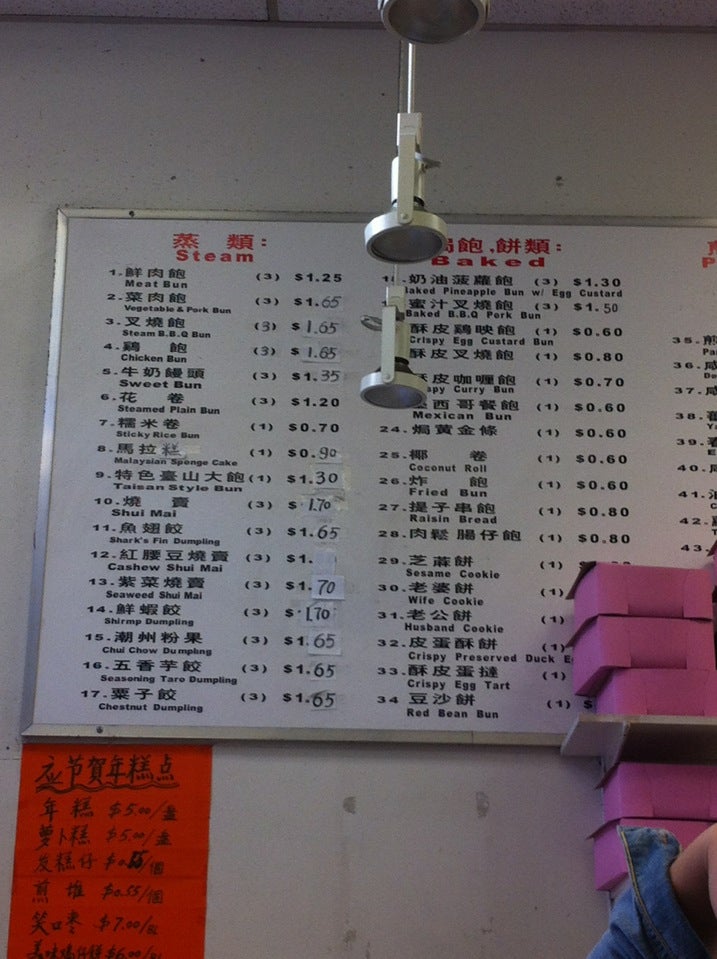 蒸 類:
Steam
1.鮮肉飽 (3) $1.25
Meat Bun
2.菜肉飽 (3) $1.65
Vegetable & Pork Bun
3.叉燒飽 (3) $1.65
Steam B.B.Q Bun
4.鷄 飽 (3) $1.65
Chicken Bun
5.牛奶饅頭 (3) $1.35
Sweet Bun
6.花 卷 (3) $1.20
Steamed Plain Bun
7.糯米卷 (1) $0.70
Sticky Rice Bun
8.馬拉糕 (1) $0.90
Malaysian Spenge Cake
9.特色臺山大飽 (1) $1.30
Taisan Style Bun
10.燒 賣 (3) $1.70
Shui Mai
11.魚翅餃 (3) $1.65
Shark's Fin Dumpling
12.紅腰豆燒賣 (3) $1.
Cashew Shui Mai
13.紫菜燒賣 (3) $1.70
Seaweed Shui Mai
14.鮮蝦餃 (3) $1.70
Shirmp Dumpling
15.潮州粉果 (3) $1.65
Chui Chow Dumpling
16.五香芋餃 (3) $1.65
Seasoning Taro Dumpling
17.粟子餃 (3) $1.65
Chestnut Dumpling
飽,餅類:
Baked
奶油菠蘿飽 (3) $1.30
Baked Pineapple Bun w/ Egg Custard
蜜汁叉燒飽 (3) $1.50
Baked B.B.Q Pork Bun
酥皮鷄映飽 (1) $0.60
Crispy Egg Custard Bun
酥皮叉燒飽 (1) $0.80
皮咖喱飽 (1) $0.70
Curry Bun
西哥餐飽 (1) $0.60
Mexican Bun
24.焗黃金條 (1) $0.60
25.椰 卷 (1) $0.60
Coconut Roll
26.炸 飽 (1) $0.60
Fried Bun
27.提子串飽 (1) $0.80
Raisin Bread
28.肉鬆腸仔飽 (1) $0.80
29.芝蔴餅 (1)
Sesame Cookie
30.老婆餅 (1)
Wife Cookie
31.老公餅 (1)
Husband Cookie
32.皮蛋酥餅 (1)
Crispy Preserved Duck
33.酥皮蛋撻 (1)
Crispy Egg Tart
34 豆沙餅 (1) $
Red Bean Bun
35.煎
36.咸
37.咸
38.
39.
40.
41.
42.
43.
应节賀年糕点
年 糕 $5.00/盒
萝卜糕 $5.00/盒
发糕仔 $0.55/個
煎 堆 $0.55/個
笑口枣 $7.00/
$6.00/